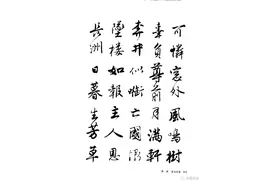 可憐窓外風鳴樹
辜負尊前月滿軒
奔井似銜亡國淚
墜樓如報主人恩
長洲日暮生芳草